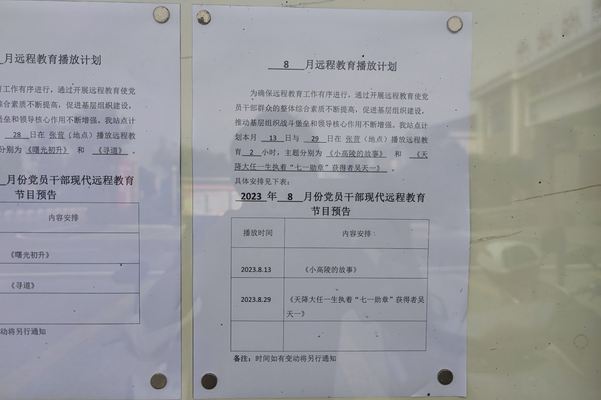 月远程教育播放计划
育工作有序进行，通过开展远程教育使党
综合素质不断提高，促进基层组织建设，
堡垒和领导核心作用不断增强，我站点计
28 日在 张营（地点）播放远程教
分别为《曙光初升》 和 《寻道》 。
月份党员干部现代远程教育
节目预告
内容安排
《曙光初升》
《寻道》
变动将另行通知
8 月远程教育播放计划
为确保远程教育工作有序进行，通过开展远程教育使党
员干部群众的整体综合素质不断提高，促进基层组织建设，
推动基层组织战斗堡垒和领导核心作用不断增强，我站点计
划本月 13 日与 29 日在 张营（地点）播放远程教
育 2 小时，主题分别为 《小高陵的故事》 和 《天
降大任一生执着“七一勋章”获得者吴天一》 。
具体安排见下表：
2023 年 8 月份党员干部现代远程教育
节目预告
播放时间 内容安排
2023.8.13 《小高陵的故事》
2023.8.29 《天降大任一生执着“七一勋章”获得者吴
天一》
备注：时间如有变动将另行通知